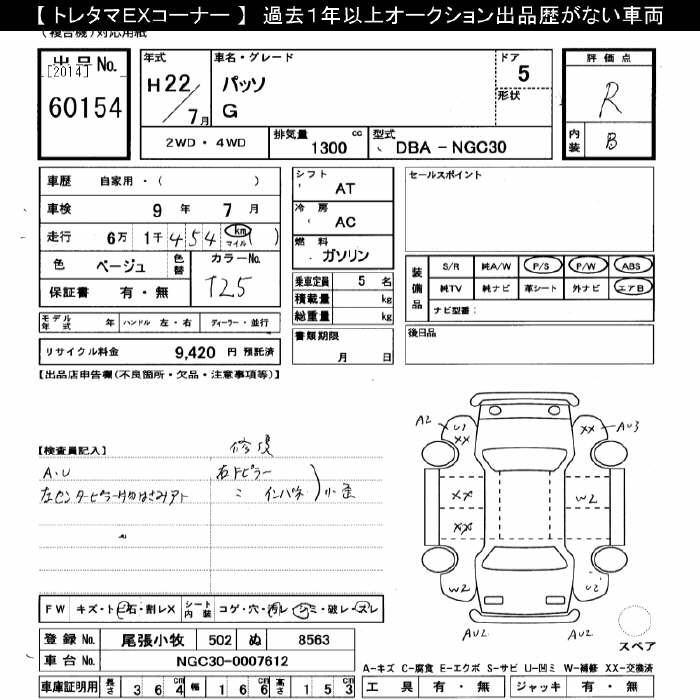 【 トレタマEXコーナー 】 過去1年以上オークション出品歴がない車両
(複合機)対応用紙
出品No.
[2014]
60154
年式
H22/7月
車名・グレード
パッソ
G
ドア
5
形状
評価点
R
内装
B
2WD・4WD
排気量 1300 cc
型式 DBA - NGC30
車歴 自家用・( )
車検 9 年 7 月
走行 6万 1千 4 5 4 km マイル ( )
色 ベージュ 色替
カラーNo.
T25
保証書 有・無
モデル年式 年 ハンドル 左・右 ディーラー・並行
リサイクル料金 9,420 円 預託済
シフト
AT
冷房
AC
燃料
ガソリン
乗車定員 5 名
積載量 kg
総重量 kg
書類期限
月 日
セールスポイント
装備品
S/R 純A/W P/S P/W ABS
純TV 純ナビ 革シート 外ナビ エアB
ナビ型番:
後日品
【出品店申告欄(不良箇所・欠品・注意事項等)】
【検査員記入】
修復
A・U
右Fピラー
左センターピラー付ケはさみアト
〃 インパネ 小歪
A2
U1
XX
XX
AU3
XX
W2
XX
W2
U2
AU2
AU2
スペア
FW キズ・トビ石・割レX シート内装 コゲ・穴・汚レ・シミ・破レ・スレ
登録No. 尾張小牧 502 ぬ 8563
車台No. NGC30-0007612
車庫証明用 長さ 3 6 4 cm 幅 1 6 6 cm 高さ 1 5 3 cm
A-キズ C-腐食 E-エクボ S-サビ U-凹ミ W-補修 XX-交換済
工具 有・無 ジャッキ 有・無